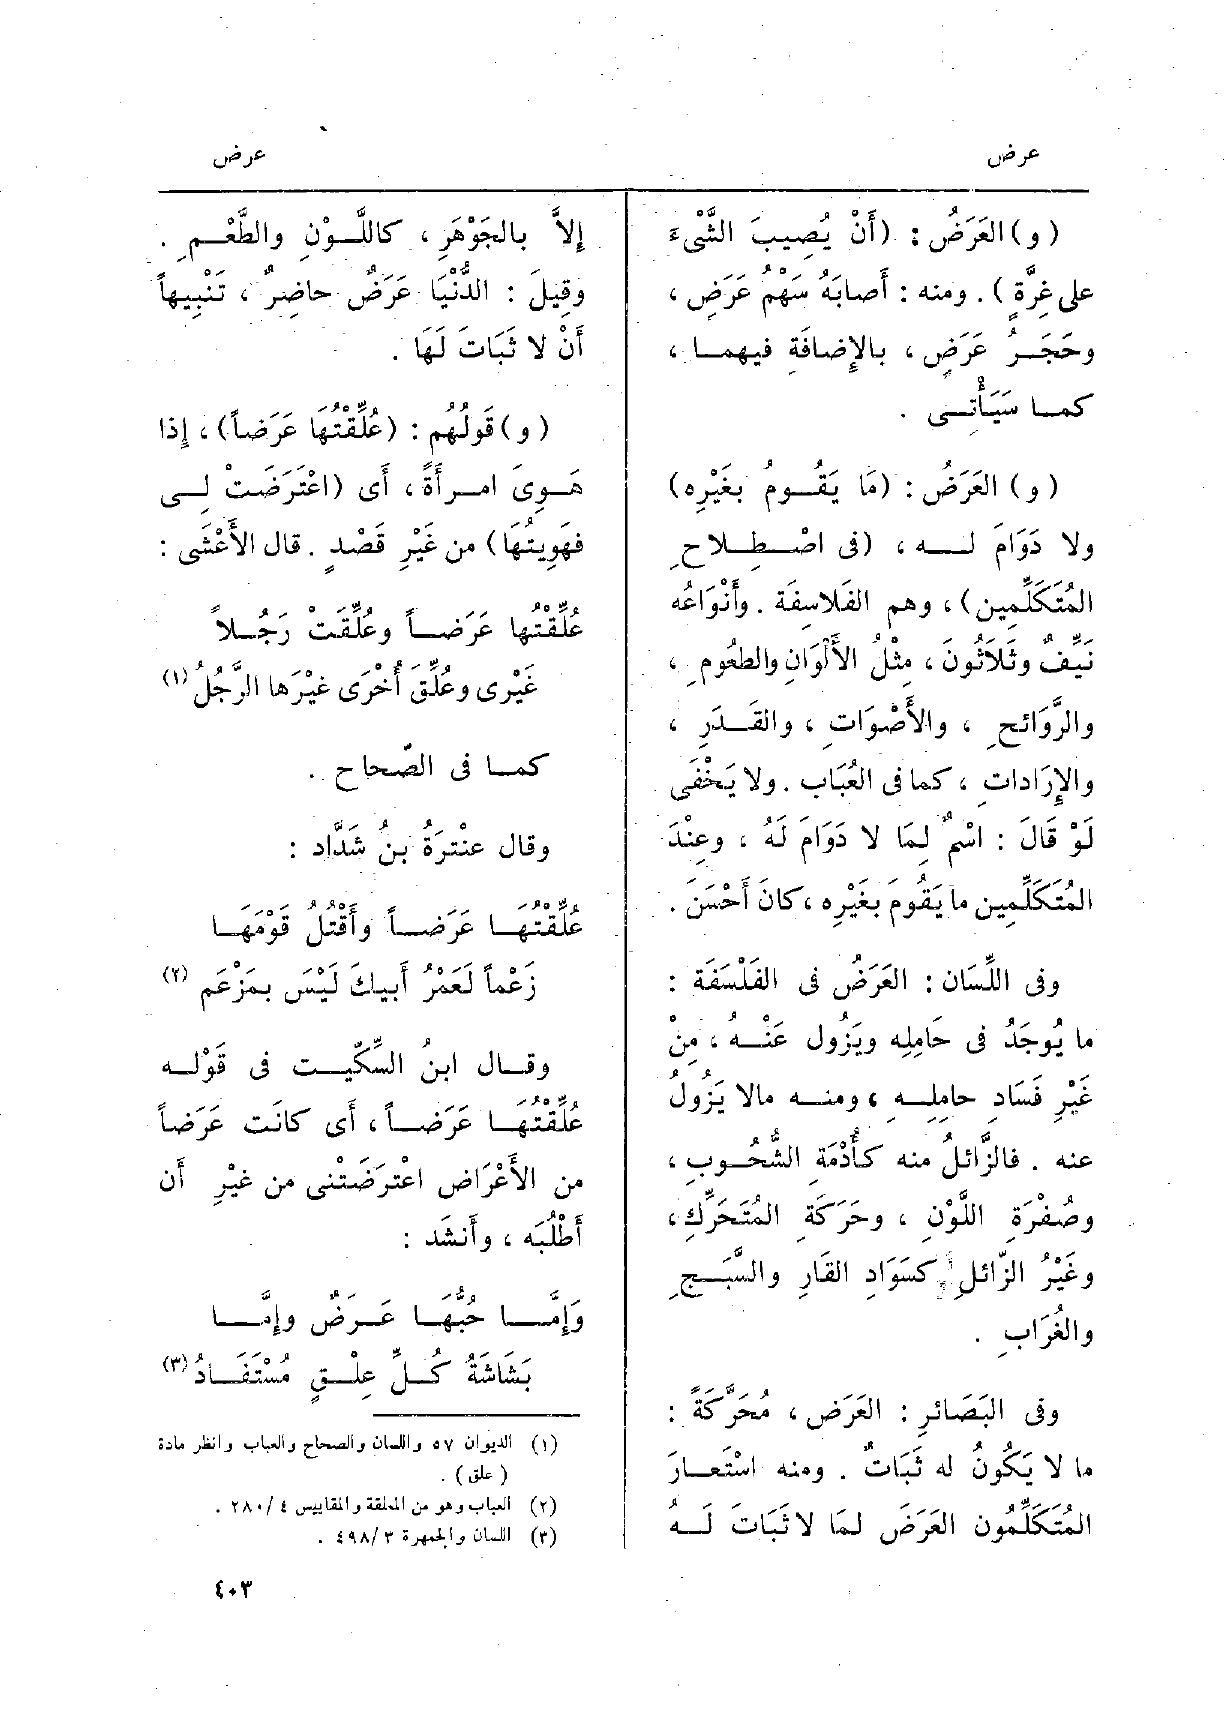 عرض
عرض
(و) العَرَضُ : (أَنْ يُصِيبَ الشَّىْءَ
على غِرَّةٍ) . ومنه : أَصابَهُ سَهْمُ عَرَضٍ ،
وحَجَرُ عَرَضٍ ، بالإِضافَةِ فيهما ،
كما سَيَأْتِى .
(و) العَرَضُ : (مَا يَقُومُ بغَيْرِه)
ولا دَوَامَ له ، (فى اصْطِلاحِ
المُتَكَلِّمِين) ، وهم الفَلَاسِفَة . وأَنْوَاعُه
نَيِّفٌ وثَلَاثُونَ ، مِثْلُ الأَلْوَانِ والطعُومِ ،
والرَّوَائحِ ، والأَصْوَاتِ ، والقَدَرِ ،
والإِرَاداتِ ، كما فى العُبَاب . ولا يَخْفَى
لَوْ قَالَ : اسْمٌ لِمَا لا دَوَامَ لَهُ ، وعِنْدَ
المُتَكَلِّمِين ما يَقُومُ بغَيْرِه ، كانَ أَحْسَنَ .
وفى اللِّسَان : العَرَضُ فى الفَلْسَفَة :
ما يُوجَدُ فى حَامِلِه ويَزُول عَنْهُ ، مِنْ
غَيْرِ فَسَادِ حامِلِهِ ، ومنه مالا يَزُولُ
عنه . فالزَّائلُ منه كأُدْمَةِ الشُّحُوبِ ،
وصُفْرَةِ اللَّوْنِ ، وحَرَكَةِ المُتَحَرِّكِ ،
وغَيْرُ الزَّائلِ كسَوَادِ القَارِ والسَّبَجِ
والغُرَابِ .
وفى البَصَائرِ : العَرَض ، مُحَرَّكَةً :
ما لا يَكُونُ له ثَبَاتٌ . ومنه اسْتَعارَ
المُتَكَلِّمُون العَرَضَ لمَا لا ثَبَاتَ لَهُ
إِلاَّ بالجَوْهَرِ ، كاللَّوْنِ والطَّعْمِ .
وقِيلَ : الدُّنْيَا عَرَضٌ حاضِرٌ ، تَنْبِيهاً
أَنْ لا ثَبَاتَ لَهَا .
(و) قَولُهُم : (عُلِّقْتُهَا عَرَضاً) ، إِذا
هَوِىَ امرأَةً ، أَى (اعْتَرَضَتْ لِى
فهَوِيتُهَا) من غَيْرِ قَصْدٍ . قال الأَعْشَى :
عُلِّقْتُها عَرَضاً وعُلِّقَتْ رَجُلاً
غَيْرِى وعُلِّقَ أُخْرَى غيْرَها الرَّجُلُ (١)
كما فى الصّحاح .
وقال عنْترَةُ بنُ شَدَّاد :
عُلِّقْتُهَا عَرَضاً وأَقْتُلُ قَوْمَهَا
زَعْماً لَعَمْرُ أَبيكَ لَيْسَ بمَزْعَمِ (٢)
وقال ابنُ السِّكِّيت فى قَوْله
عُلِّقْتُهَا عَرَضاً ، أَى كانَت عَرَضاً
من الأَعْرَاض اعْترَضَتْنى من غيْرِ أَن
أَطْلُبَه ، وأَنشَد :
وَإِمَّا حُبُّهَا عَرَضٌ وإِمَّا
بَشَاشَةُ كُلِّ عِلْقٍ مُسْتَفَادُ (٣)
(١) الديوان ٥٧ واللسان والصحاح والعباب وانظر مادة
(علق) .
(٢) العباب وهو من المعلقة والمقاييس ٤/ ٢٨٠ .
(٣) اللسان والجمهرة ٣ /٤٩٨ .
٤٠٣